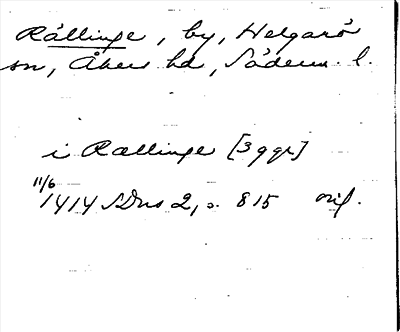 Rällinge, by, Helgarö
sn, Åkers hd, Söderm. l.
i Rællinge [3 ggr]
11/6
1414 SDns 2, s. 815 orig.